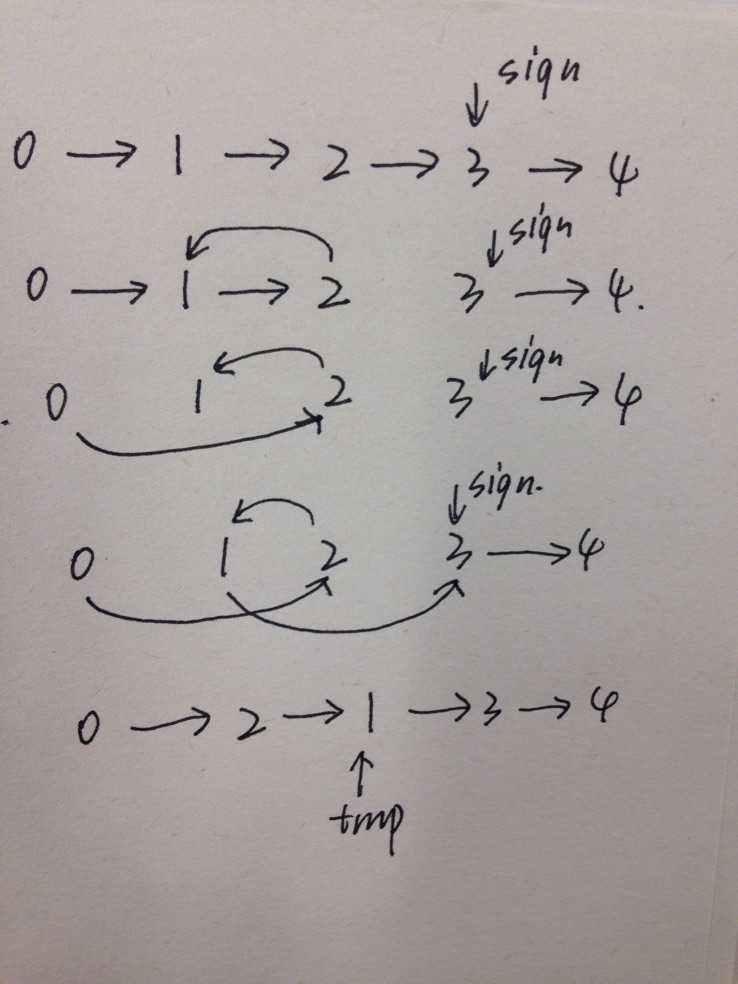 sign
0 → 1 → 2 → 3 → 4
sign
0 → 1 → 2 3 → 4.
sign
0 1 2 3 → 4
sign.
0 1 2 3 → 4
0 → 2 → 1 → 3 → 4
tmp